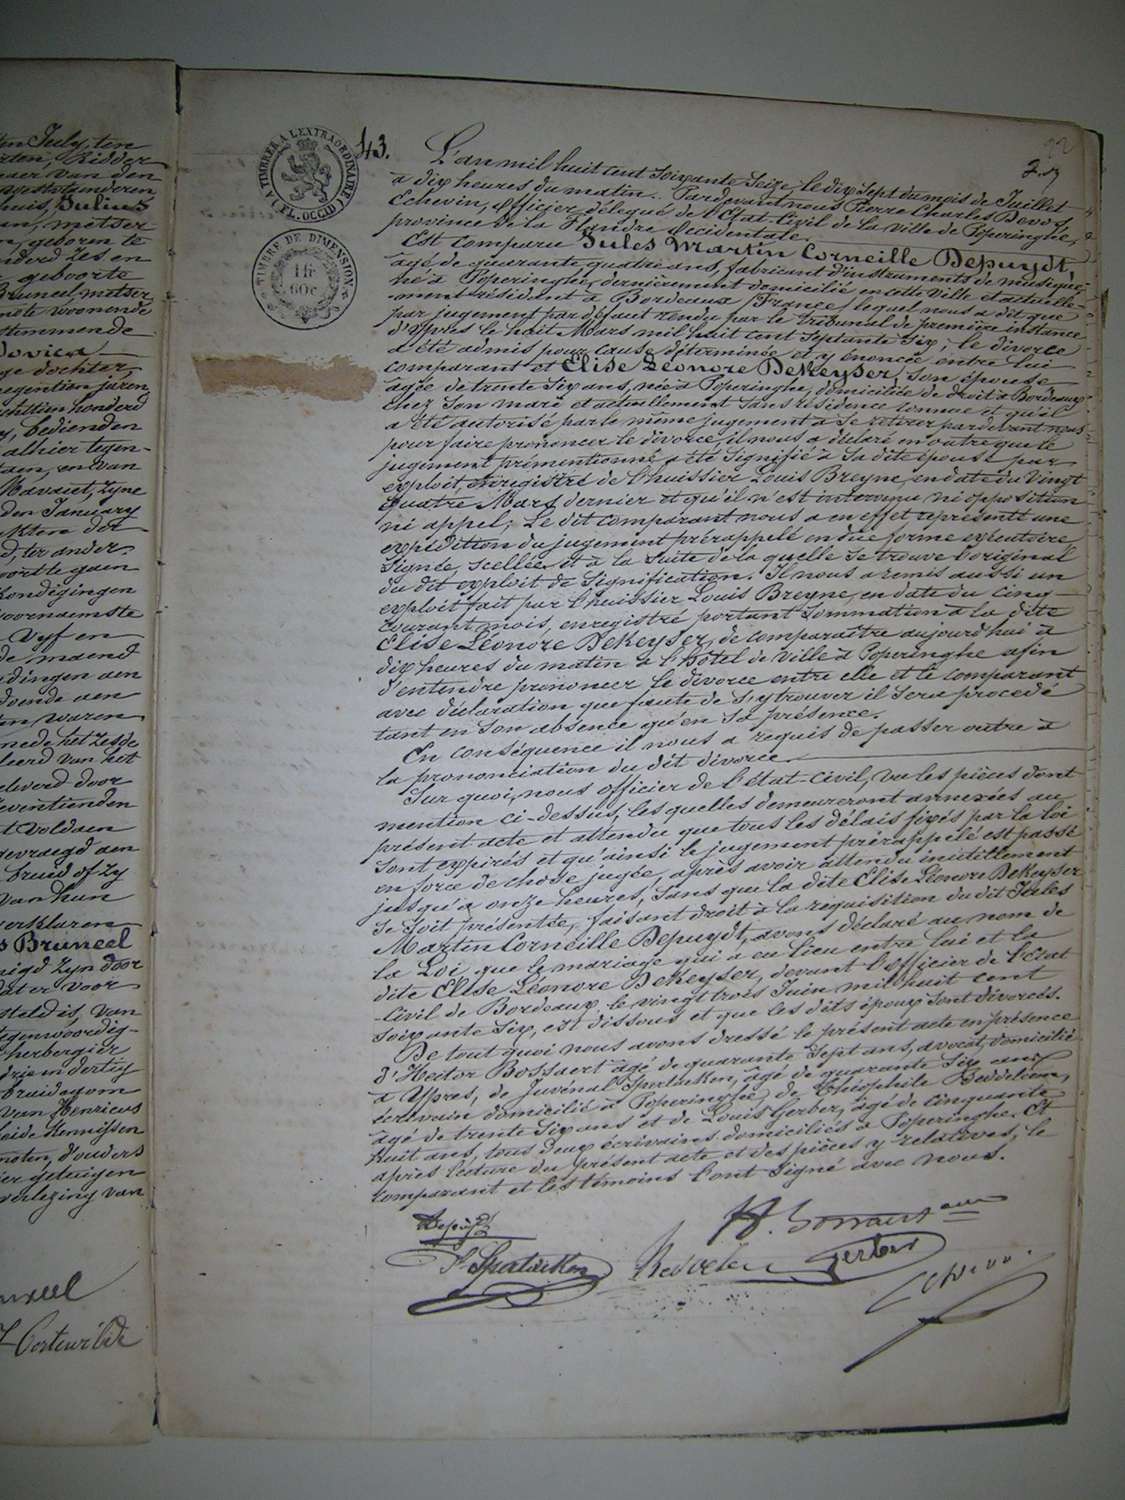 ten July, ten
rten, Ridder
naer van den
huis, Julius
an, metser
n, geboren te
nderd zes en
geboorte
Bruneel, metser
note woonende
stemmende
Dovica
ge dochter
negentien jaren
chttien honderd
y, bedienden
alhier tegen-
aen, en van
Mavaiet, zyne
den January
akten dot
d, ter ander.
voort te gaen
kondigingen
voornaemste
Vyf en
de maend
digingen aen
doende aen
en waren
mede het zesde
leerd van het
elwerd door
eventienden
t voldaen
gevraegd aen
bruid of zy
van hun
verklaren
s Bruneel
nigd zyn door
dater voor
steldis, van
tegenwoordig-
herbergier
drie en dertig
bruidegom
van Henricus
noten, d'ouders
er getuigen
verlezing van
A TIMBRER A L'EXTRAORDINAIRE
(FL. OCCID.)
TIMBRE DE DIMENSION
1 fr
60c
43.
22
L'an mil huit cent soixante seize, le dix sept du mois de Juillet
à dix heures du matin. Pardevant nous Pierre Charles Devos,
Echevin, officier délégué de l'Etat-Civil de la ville de Poperinghe,
province de la Flandre Occidentale.
Est comparu Jules Martin Corneille Depuydt,
âgé de quarante quatre ans, fabricant d'instruments de musique
né à Poperinghe, dernièrement domicilié en cette ville et actuelle-
ment résident à Bordeaux (France) lequel nous a dit que
par jugement par défaut rendu par le Tribunal de première instance
d'Ypres le huit Mars mil huit cent septante six, le divorce
a été admis pour cause déterminée et y enoncée entre lui
comparant et Elise Léonore DeKeyser, son épouse
âgée de trente six ans, née à Poperinghe, domiciliée de droit à Bordeaux
chez son mari et actuellement sans résidence connue et qu'il
a été autorisé par le même jugement à se retirer pardevant nous
pour faire prononcer le divorce, il nous a déclaré en outre que le
jugement prémentionné a été signifié à sa dite épouse par
exploit, enregistré de l'huissier Louis Breyne, en date du vingt
quatre Mars dernier et qu'il n'est intervenu ni opposition
ni appel; Le dit comparant nous a en effet représenté une
expédition du jugement prérappelé en due forme exécutoire
signée, scellée et à la suite de la quelle se trouve l'original
du dit exploit de signification. Il nous a remis aussi un
exploit fait par l'huissier Louis Breyne, en date du cinq
courant mois, enregistré portant sommation à la dite
Elise Léonore DeKeyser, de comparaître aujourd'hui à
dix heures du matin à l'hôtel de ville à Poperinghe afin
d'entendre prononcer le divorce entre elle et le comparant
avec déclaration que faute de s'y trouver il sera procédé
tant en son absence qu'en sa présence.
En conséquence il nous a requis de passer outre à
la prononciation du dit divorce.
Sur quoi, nous officier de l'état-civil, vu les pièces dont
mention ci-dessus, les quelles demeureront annexées au
présent acte et attendu que tous les délais fixés par la loi
sont expirés et qu'ainsi le jugement prérappelé est passé
en force de chose jugée, après avoir attendu inutillement
jusqu'à onze heures, sans que la dite Elise Léonore DeKeyser
se soit présentée, faisant droit à la requisition du dit Jules
Martin Corneille Depuydt, avons déclaré au nom de
la Loi que le mariage qui a eu lieu entre lui et la
dite Elise Léonore DeKeyser, devant l'officier de l'Etat
-Civil de Bordeaux le vingt trois Juin mil huit cent
soixante six, est dissous et que les dits époux sont divorcés.
De tout quoi nous avons dressé le présent acte en présence
d'Hector Bossaert âgé de quarante sept ans, avocat, domicilié
à Ypres, de Juvénal Spartacken, âgé de quarante six ans
écrivain domicilié à Poperinghe, de Théophile Beddeleem,
âgé de trente six ans et de Louis Gerber, âgé de cinquante
huit ans, tous deux écrivains domiciliés à Poperinghe. Et
après lecture du présent acte et des pièces y relatives, le
comparant et les témoins l'ont signé avec nous.
Depuydt
Gerber